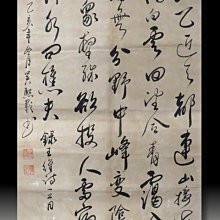 乙近天都連山接
白雲回望合青靄
無分野中峰變陰
衆壑殊欲投人處宿
水問樵夫 錄王維詩一首
乙亥年冬月